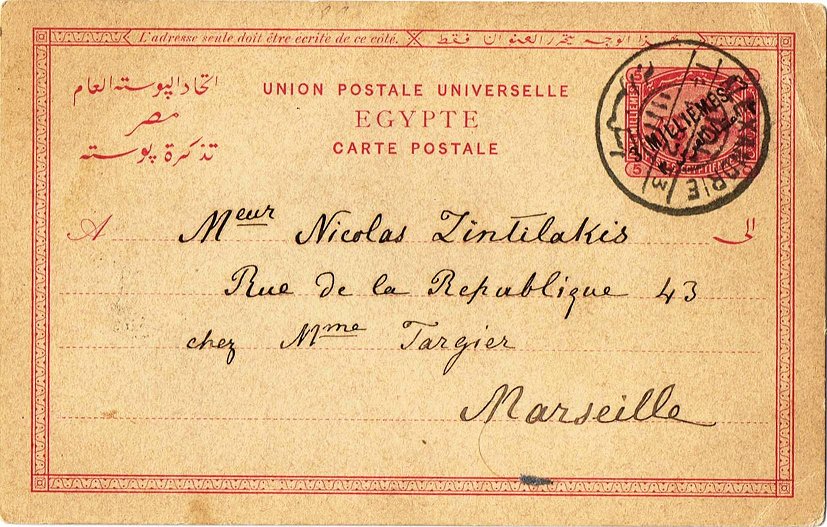 L'adresse seule doit être écrite de ce côté.
هذا الوجه محرر العنوان فقط
اتحاد البوسته العام
مصر
تذكرة بوسته
UNION POSTALE UNIVERSELLE
EGYPTE
CARTE POSTALE
MILLIÈMES
5
A
الى
Meur Nicolas Zintilakis
Rue de la Republique 43
chez Mme Targier
Marseille